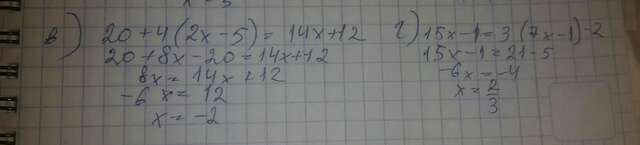 в) 20 + 4(2x - 5) = 14x + 12
20 + 8x - 20 = 14x + 12
8x = 14x + 12
-6x = 12
x = -2
г) 15x - 1 = 3(7x - 1) - 2
15x - 1 = 21 - 5
-6x = -4
x = 2/3